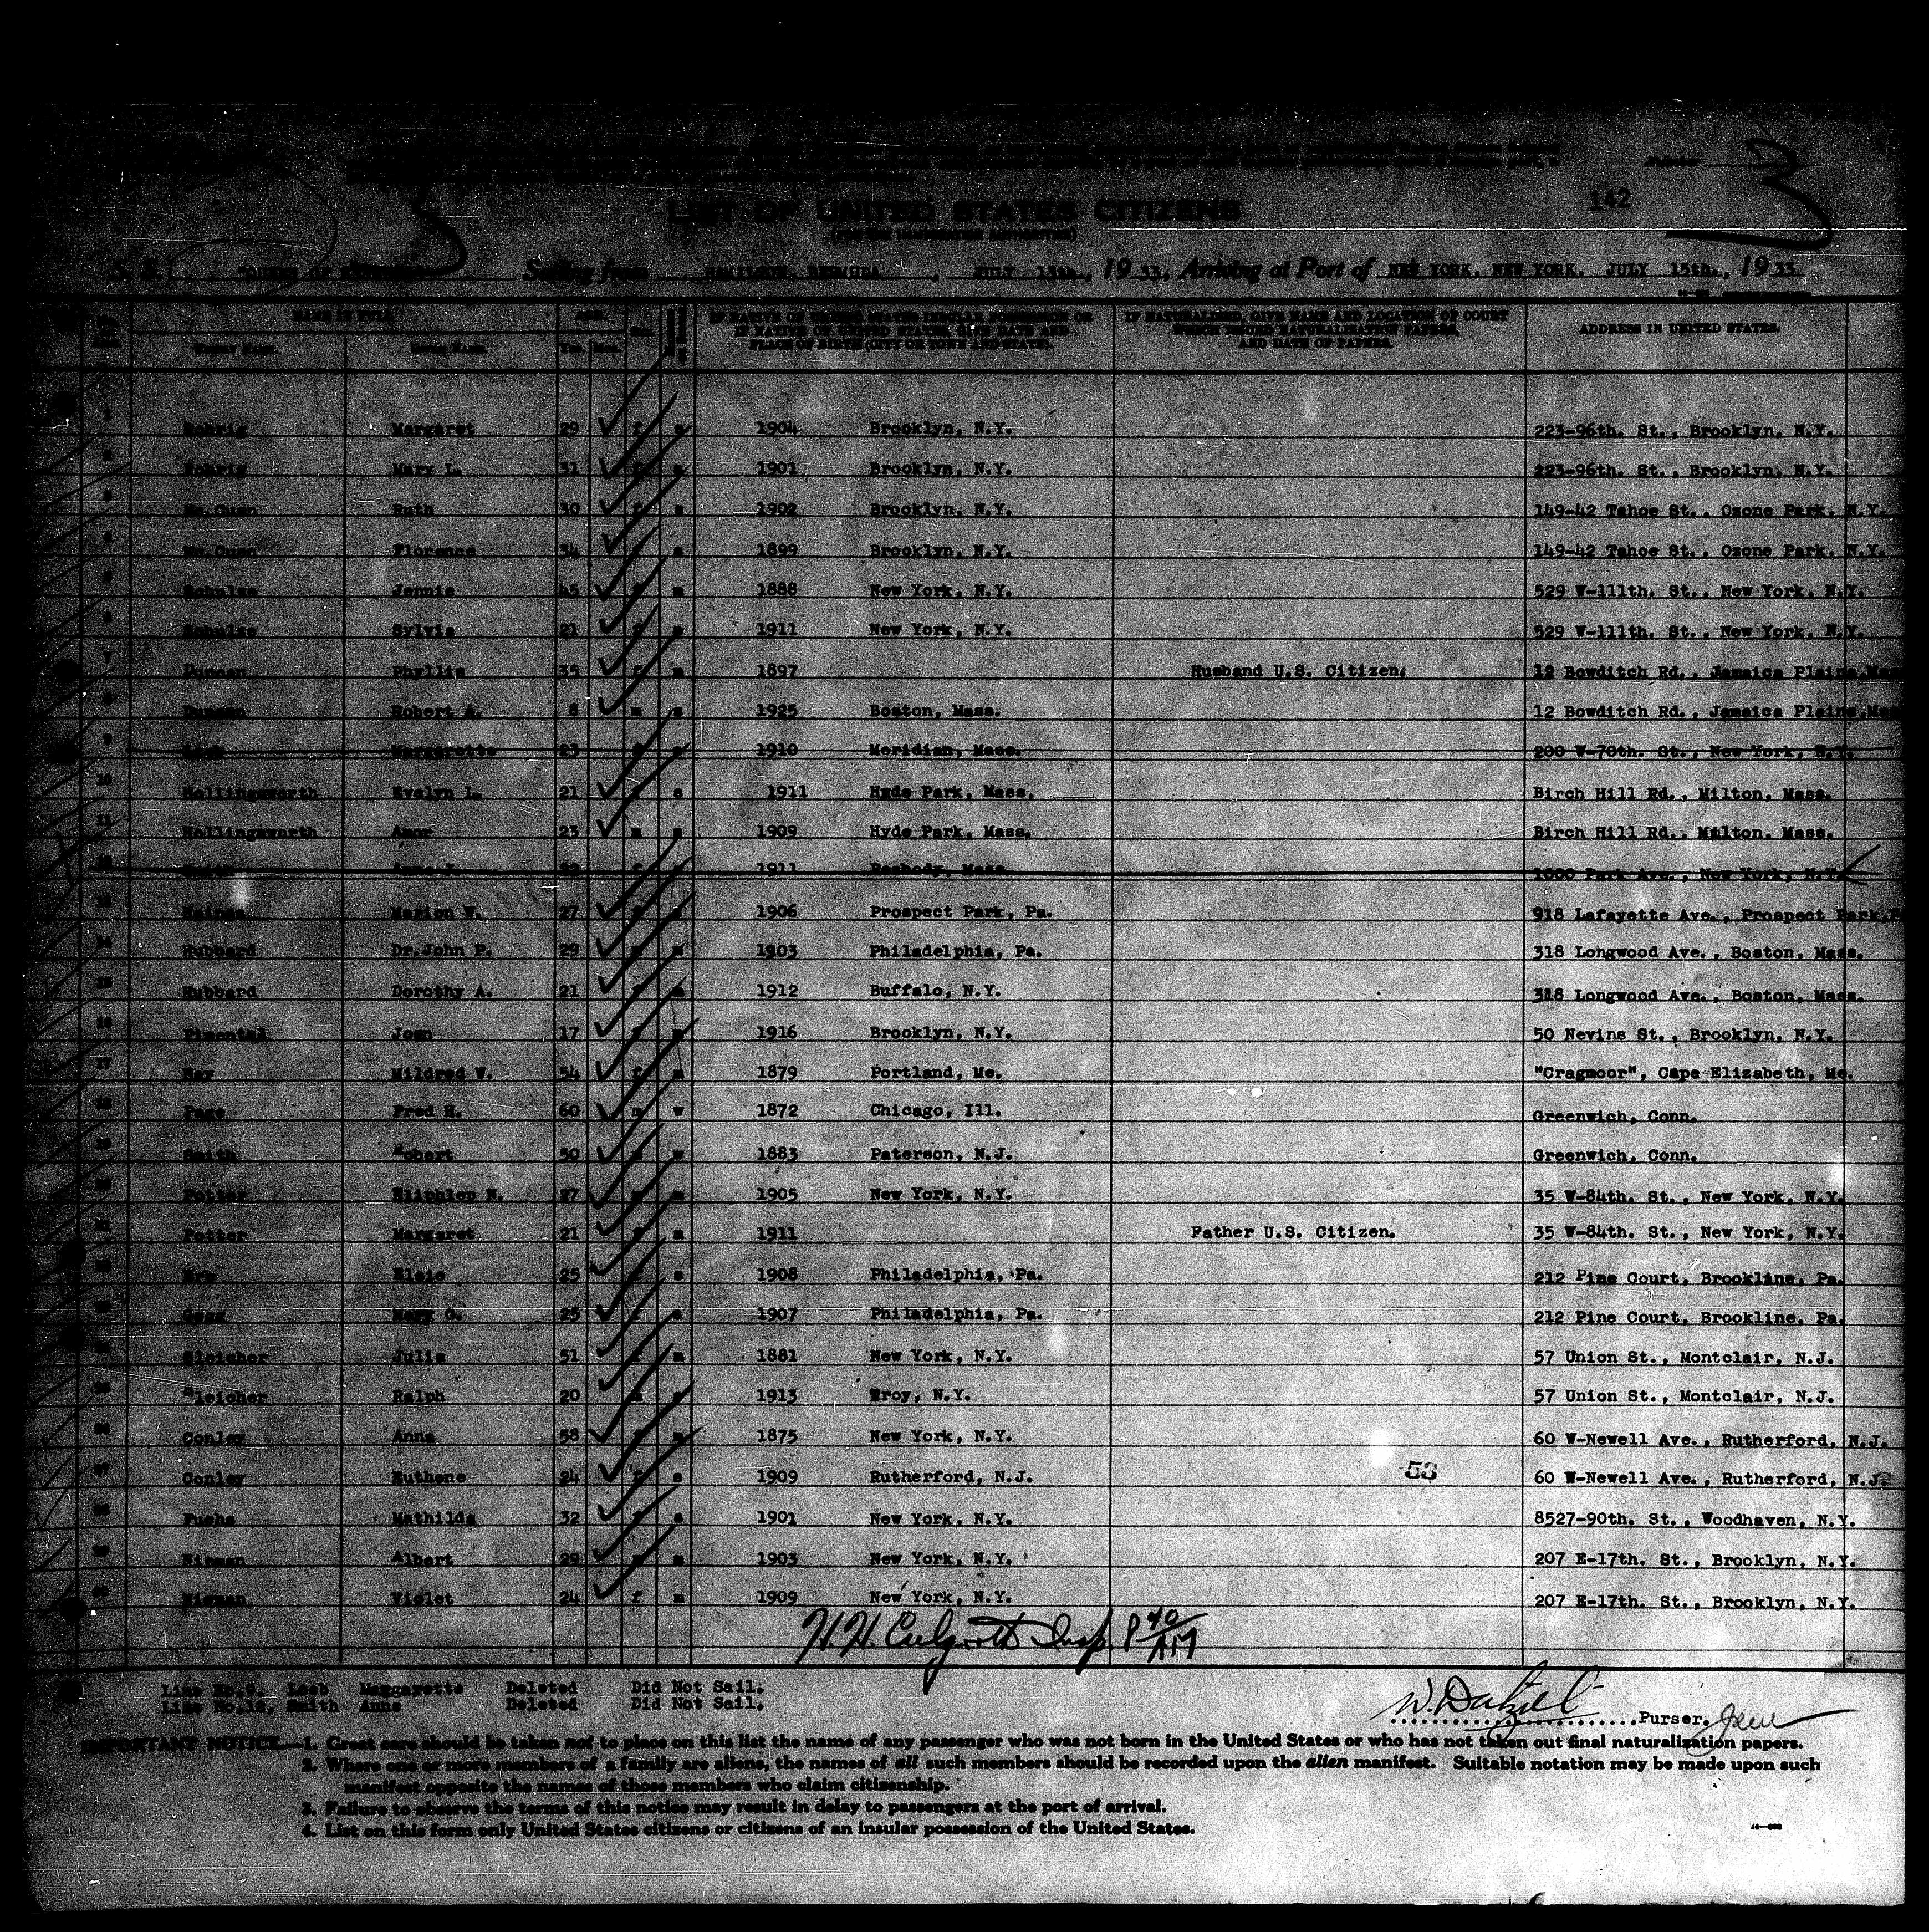 3
142
3
LIST OF UNITED STATES CITIZENS
(FOR THE IMMIGRATION AUTHORITIES)
S. S. QUEEN OF BERMUDA Sailing from HAMILTON, BERMUDA, JULY 13th., 1933, Arriving at Port of NEW YORK, NEW YORK, JULY 15th., 1933
NAME IN FULL AGE
IF NATIVE OF UNITED STATES INSULAR POSSESSION OR IF NATIVE OF UNITED STATES, GIVE DATE AND PLACE OF BIRTH (CITY OR TOWN AND STATE).
IF NATURALIZED, GIVE NAME AND LOCATION OF COURT WHICH ISSUED NATURALIZATION PAPERS, AND DATE OF PAPERS.
ADDRESS IN UNITED STATES
FAMILY NAME GIVEN NAME Yrs. Mos.
1 Margaret 29 f s 1904 Brooklyn, N.Y. 223-96th. St., Brooklyn, N.Y.
2 Mary L. 31 f s 1901 Brooklyn, N.Y. 223-96th. St., Brooklyn, N.Y.
3 Ruth 30 f s 1902 Brooklyn, N.Y. 149-42 Tahoe St., Ozone Park, N.Y.
4 Florence 34 f s 1899 Brooklyn, N.Y. 149-42 Tahoe St., Ozone Park, N.Y.
5 Schulze Jennie 45 f m 1888 New York, N.Y. 529 W-111th. St., New York, N.Y.
6 Schulze Sylvia 21 f s 1911 New York, N.Y. 529 W-111th. St., New York, N.Y.
7 Duncan Phyllis 35 f m 1897 Husband U.S. Citizen. 12 Bowditch Rd., Jamaica Plains, Mass
8 Duncan Robert A. 8 m s 1925 Boston, Mass. 12 Bowditch Rd., Jamaica Plains, Mass
9 Loeb Margarette 23 f s 1910 Meridian, Mass. 200 W-70th. St., New York, N.Y.
10 Hollingsworth Evelyn L. 21 f s 1911 Hyde Park, Mass. Birch Hill Rd., Milton, Mass.
11 Hollingsworth Amor 23 m s 1909 Hyde Park, Mass. Birch Hill Rd., Milton, Mass.
12 Smith Anne J. 22 f s 1911 Peabody, Mass. 1000 Park Ave., New York, N.Y.
13 Haines Marion W. 27 f 1906 Prospect Park, Pa. 918 Lafayette Ave., Prospect Park, P
14 Hubbard Dr. John P. 29 m m 1903 Philadelphia, Pa. 318 Longwood Ave., Boston, Mass.
15 Hubbard Dorothy A. 21 f m 1912 Buffalo, N.Y. 318 Longwood Ave., Boston, Mass.
16 Joan 17 f 1916 Brooklyn, N.Y. 50 Nevins St., Brooklyn, N.Y.
17 Mildred W. 54 f m 1879 Portland, Me. "Cragmoor", Cape Elizabeth, Me.
18 Page Fred H. 60 m w 1872 Chicago, Ill. Greenwich, Conn.
19 Smith Robert 50 m w 1883 Paterson, N.J. Greenwich, Conn.
20 Potter 27 m m 1905 New York, N.Y. 35 W-84th. St., New York, N.Y.
21 Potter Margaret 21 f m 1911 Father U.S. Citizen. 35 W-84th. St., New York, N.Y.
22 Elsie 25 f s 1908 Philadelphia, Pa. 212 Pine Court, Brookline, Pa.
23 Mary G. 25 f s 1907 Philadelphia, Pa. 212 Pine Court, Brookline, Pa.
24 Sleicher Julia 51 f m 1881 New York, N.Y. 57 Union St., Montclair, N.J.
25 Sleicher Ralph 20 m s 1913 Troy, N.Y. 57 Union St., Montclair, N.J.
26 Conley Anna 58 f m 1875 New York, N.Y. 60 W-Newell Ave., Rutherford, N.J.
27 Conley Euthene 24 f s 1909 Rutherford, N.J. 53 60 W-Newell Ave., Rutherford, N.J.
28 Fuchs Mathilda 32 f s 1901 New York, N.Y. 8527-90th. St., Woodhaven, N.Y.
29 Nieman Albert 29 m m 1903 New York, N.Y. 207 E-17th. St., Brooklyn, N.Y.
30 Nieman Violet 24 f m 1909 New York, N.Y. 207 E-17th. St., Brooklyn, N.Y.
H.H. Insp. 8 40 AM
Line No.9. Loeb Margarette Deleted Did Not Sail.
Line No.12, Smith Anne Deleted Did Not Sail.
W. Dalziel Purser.
IMPORTANT NOTICE.—1. Great care should be taken not to place on this list the name of any passenger who was not born in the United States or who has not taken out final naturalization papers.
2. Where one or more members of a family are aliens, the names of all such members should be recorded upon the alien manifest. Suitable notation may be made upon such
manifest opposite the names of those members who claim citizenship.
3. Failure to observe the terms of this notice may result in delay to passengers at the port of arrival.
4. List on this form only United States citizens or citizens of an insular possession of the United States.